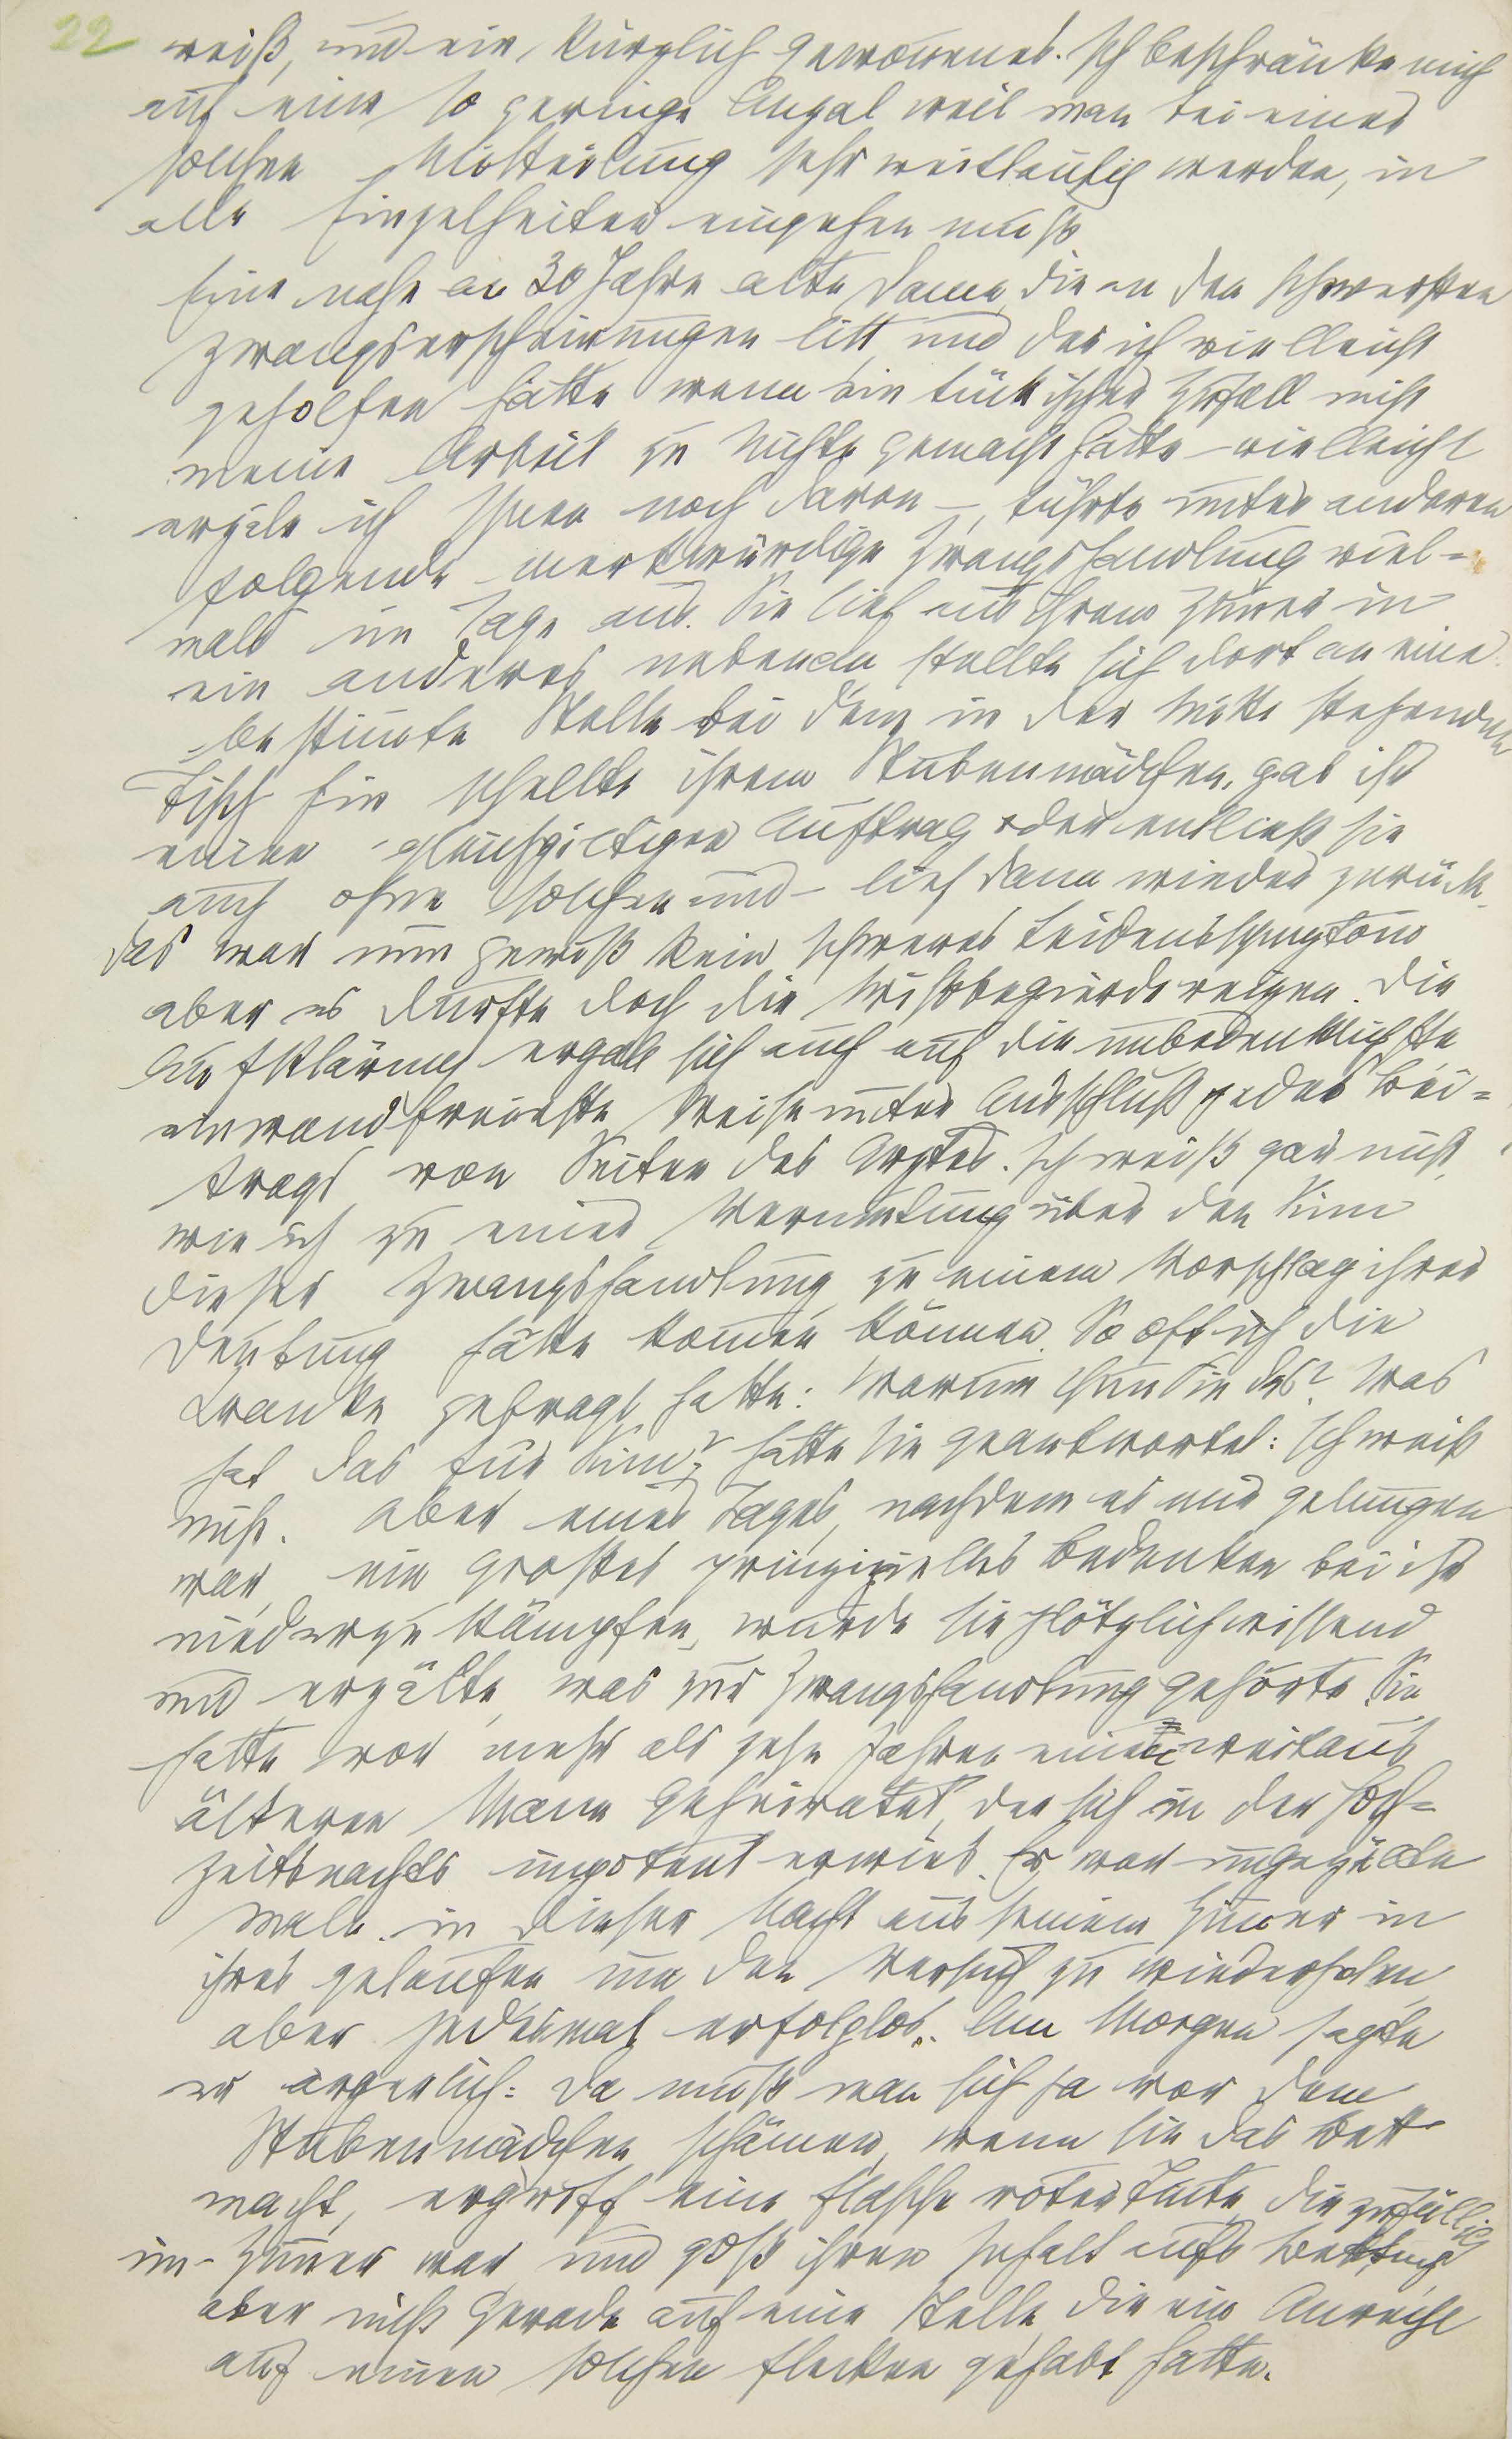 22
weiß, und ein kürzlich gewonnenes. Ich beschränke mich
auf eine so geringe Anzal weil man bei einer
solchen Mitteilung sehr weitläufig werden, in
alle Einzelheiten eingehen muß
Eine nahe an 30 Jahre alte Dame, die an den schwersten
Zwangserscheinungen litt, und der ich vielleicht
geholfen hätte wenn ein tückischer Zufall nicht
meine Arbeit zu Nichte gemacht hätte – vielleicht
erzäle ich Ihnen noch davon –, führte unter anderen
folgende merkwürdige Zwangshandlung viel=
mals im Tage aus. Sie lief aus ihrem Zimer in
ein anderes nebenan stellte sich dort an eine
bestimte Stelle bei dem in der Mitte stehenden
Tisch hin schellte ihrem Stubenmädchen, gab ihr
einen gleichgiltigen Auftrag oder entließ sie
auch ohne solchen und – lief dann wieder zurück.
Das war nun gewiß kein schweres Leidenssymptom
aber es durfte doch die Wißbegierde reizen. Die
Aufklärung ergab sich auch auf die unbedenklichste
einwandfreieste Weise unter Ausschluß jedes Bei=
trags von Seiten des Arztes. Ich weiß gar nicht,
wie ich zu einer Vermutung über den Sinn
dieser Zwangshandlung, zu einem Vorschlag ihrer
Deutung hätte komen können. So oft ich die
Kranke gefragt hatte: Warum thun Sie das? Was
hat das für Sinn? hatte sie geantwortet: Ich weiß
nicht. Aber eines Tages, nachdem es mir gelungen
war, ein großes prinzipielles Bedenken bei ihr
niederzukämpfen, wurde sie plötzlich wissend
und erzälte, was zur Zwangshandlung gehörte. Sie
hatte vor mehr als zehn Jahren einen weitaus
älteren Mann geheiratet, der sich in der Hoch=
zeitsnachts impotent erwies. Er war ungezälte
Male in dieser Nacht aus seinem Zimer in
ihres gelaufen um den Versuch zu wiederholen,
aber jedesmal erfolglos. Am Morgen sagte
er ärgerlich: Da muß man sich ja vor dem
Stubenmädchen schämen, wenn sie das Bett
macht, ergriff eine Flasche roter Tinte, die zufällig
im Zimer war und goß ihren Inhalt aufs Bettuch
aber nicht gerade auf eine Stelle, die ein Anrecht
auf einen solchen Flecken gehabt hätte.